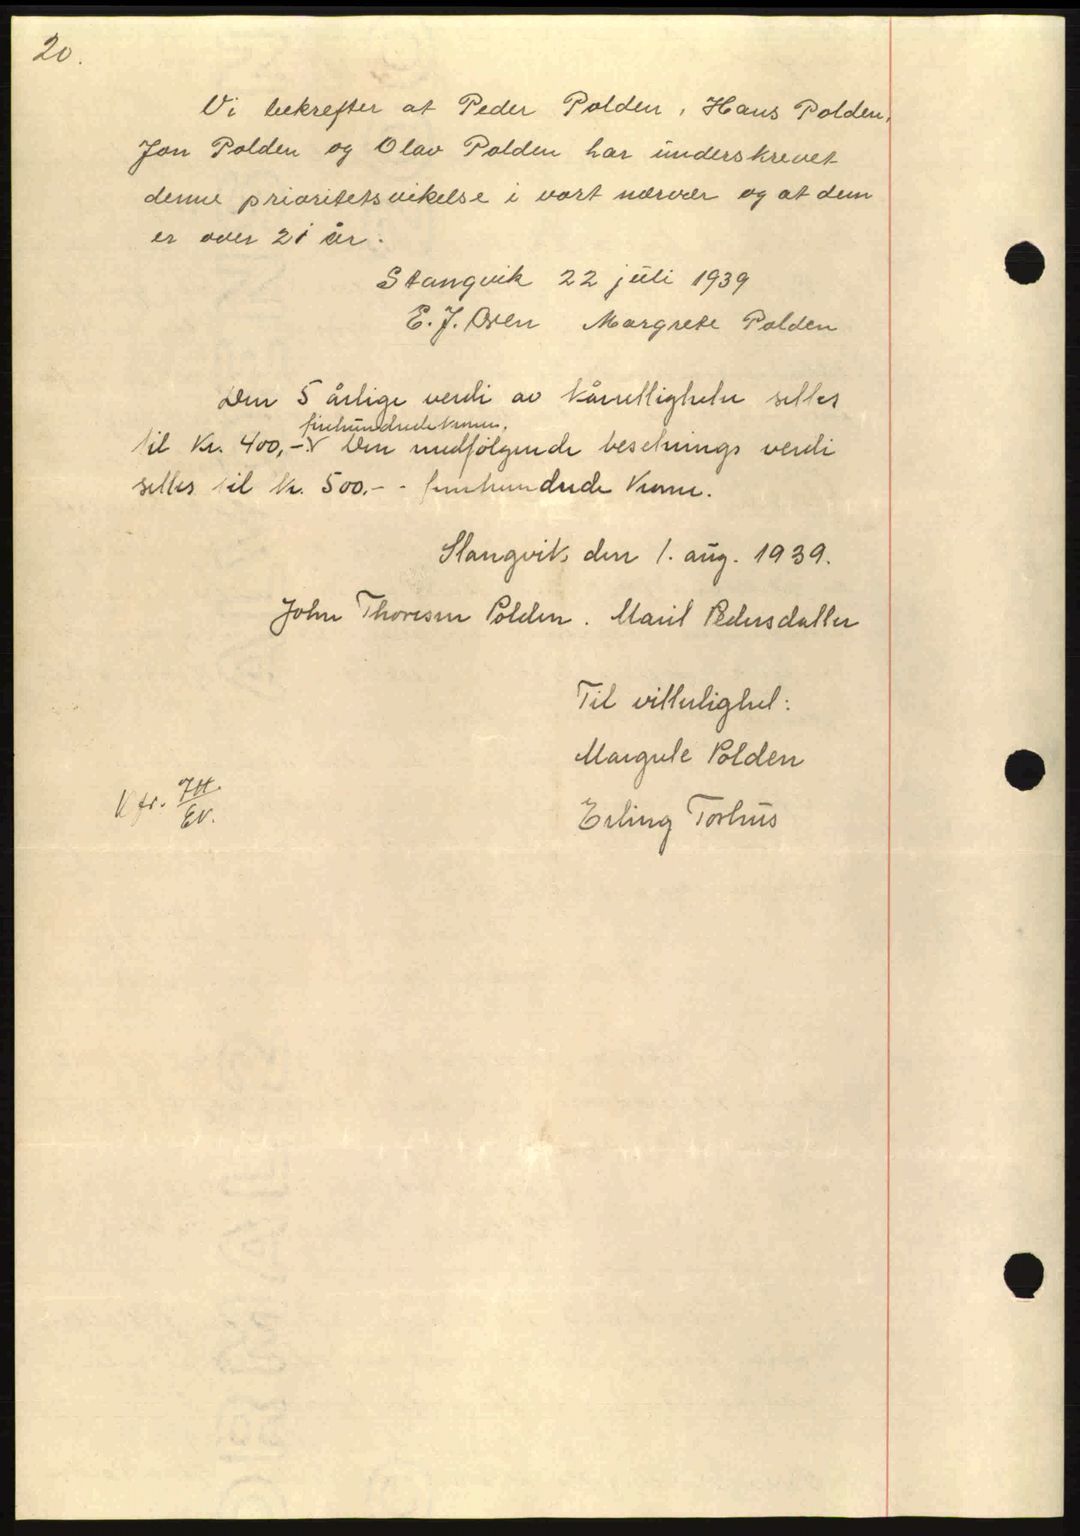 20.
Vi bekrefter at Peder Polden, Hans Polden,
Jon Polden og Olav Polden har underskrevet
denne prioritetsvikelse i vort nærvær og at dem
er over 21 år.
Stangvik 22 juli 1939
E. J. Øxen Margrete Polden
Den 5 årlige verdi av kårrettigheter settes
firehundrede kroner.
til kr. 400,- Den medfølgende besetnings verdi
settes til kr. 500,- - femhundrede kroner.
Stangvik, den 1. aug. 1939.
John Thoresen Polden. Marit Pedersdatter
Til vitterlighet:
Margrete Polden
Erling Torhus
Kfr. JH.
Ev.